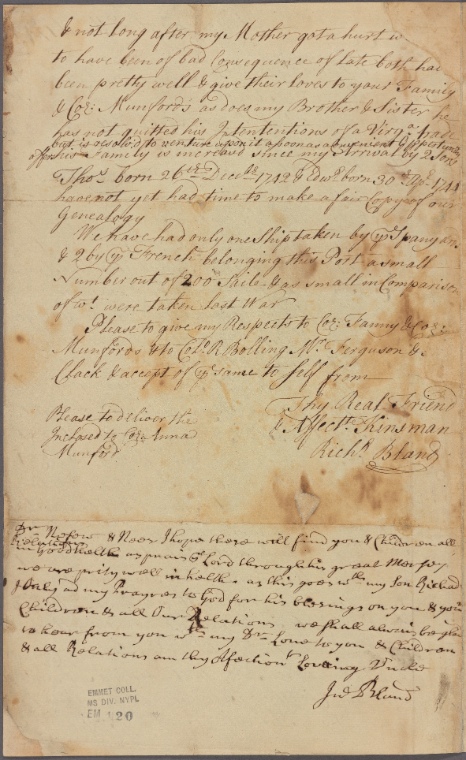 & not long after my Mother got a hurt w
to have been of bad Consequence of late both had
been pretty well & give their loves to your Family
& Coz: Munford's as does my Brother & Sister he
has not quitted his Intentions of a Virga: Trade
but is resolv'd to venture upon it as soon as a convenient Opportunity
offers his Family is increased since my Arrival by 2 Sons
Thos. born 26th Decr. 1742 & Edwd. born 30th Ap. 1744
have not yet had time to make a fair Copy of our
Genealogy
We have had only one Ship taken by ye Spanyards
& 2 by ye French belonging this Port a small
Number out of 200 Sail & as small in Comparison
of wt. were taken last War
Please to give my Respects to Coz: Fanny & Coz:
Munfords & to Colo. R Bolling Mr. Ferguson &
Clack & accept of ye same to Self from
Thy Real Friend
& Affectt. Kinsman
Richd. Bland
Please to deliver the
Inclosed to Coz: Anna
Munford
Dr. Nephew & Neece I hope these will find you & Children all
Relations
in Good health as praise ye Lord through his great Mercy
we are prity well in health as this goes wth. my Son Richard
I only ad my Prayers to God for his blesings on you & your
Children & all Our Relations we shall always be glad
to hear from you wth. my Dr. Love to you & Children
& all Relations am thy Afection Loveing Uncle
Jno Bland
EMMET COLL.
MS DIV. NYPL
EM 120